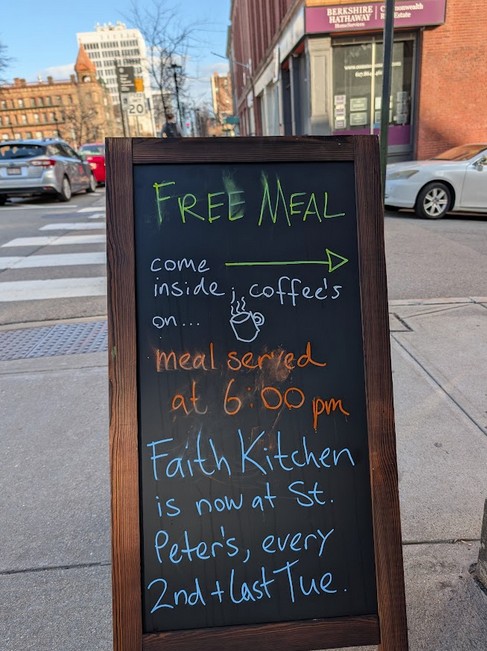 BERKSHIRE
HATHAWAY
HomeServices
Commonwealth
Real Estate
20
FREE MEAL
come
inside, coffee's
on...
meal served
at 6:00 pm
Faith Kitchen
is now at St.
Peter's, every
2nd + Last Tue.